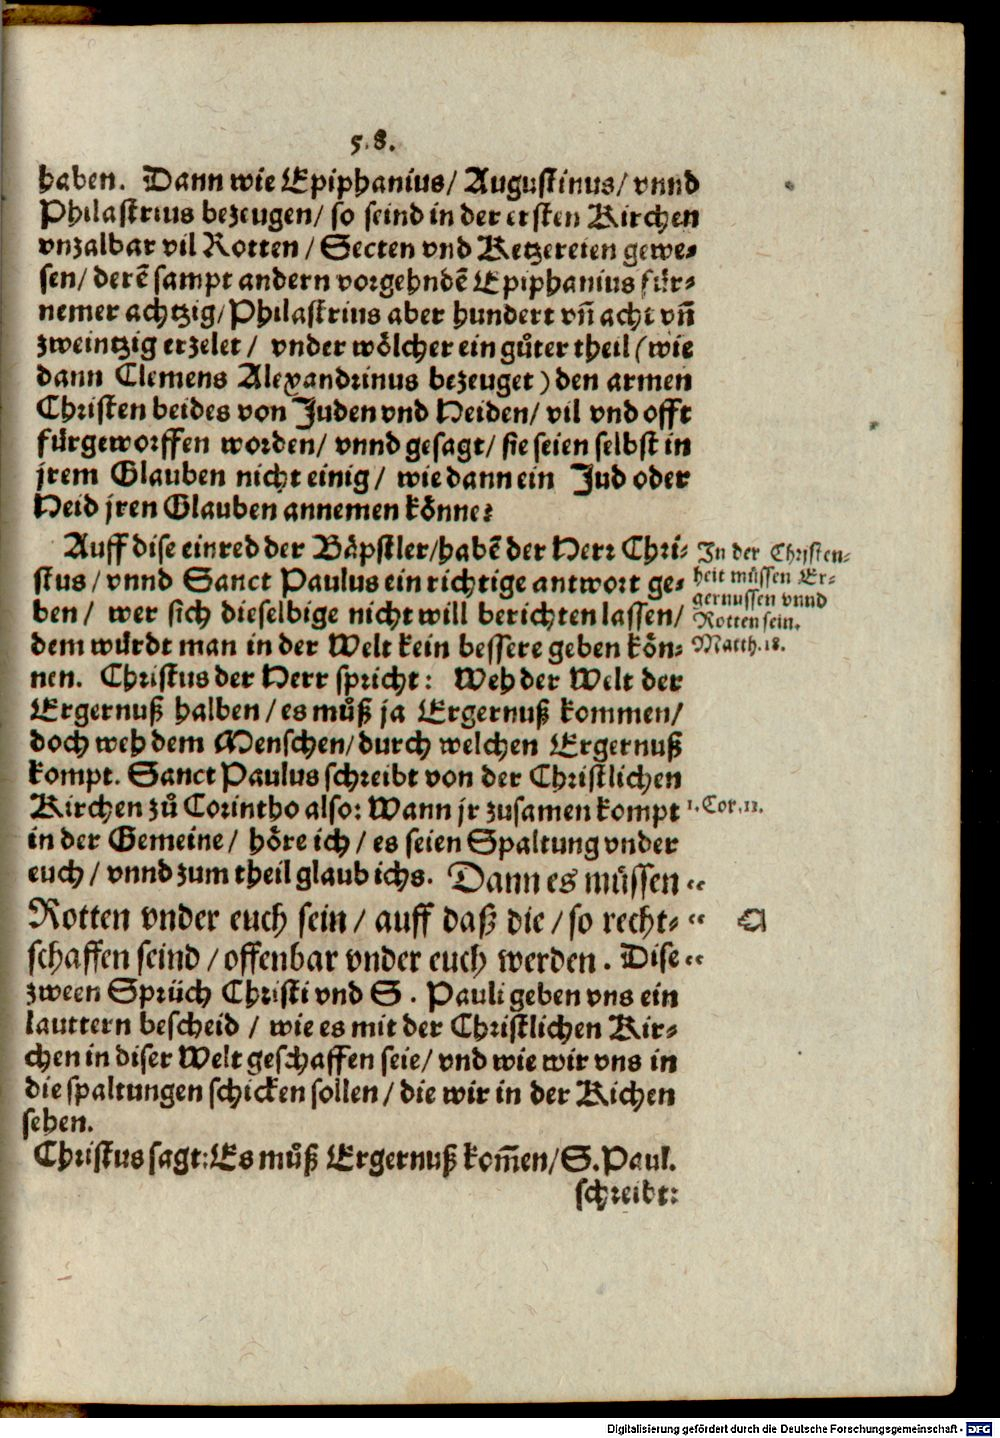 5.8.
haben. Dann wie Epiphanius/ Augustinus/ vnnd
Philastrius bezeugen/ so seind in der ersten Kirchen
vnzalbar vil Rotten / Secten vnd Ketzereien gewe⸗
sen/ derẽ sampt andern vorgehndẽ Epiphanius für⸗
nemer achtzig/ Philastrius aber hundert vñ acht vñ
zweintzig erzelet / vnder woͤlcher ein guͦter theil (wie
dann Clemens Alexandrinus bezeuget) den armen
Christen beides von Juden vnd Heiden/ vil vnd offt
fürgeworffen worden/ vnnd gesagt/ sie seien selbst in
jrem Glauben nicht einig / wie dann ein Jud oder
Heid jren Glauben annemen koͤnne?
Auff dise einred der Baͤpstler/habẽ der Herr Chri⸗
stus / vnnd Sanct Paulus ein richtige antwort ge⸗
ben / wer sich dieselbige nicht will berichten lassen/
dem würdt man in der Welt kein bessere geben koͤn⸗
nen. Christus der Herr spricht: Weh der Welt der
Ergernuß halben / es muͦß ja Ergernuß kommen/
doch weh dem Menschen/ durch welchen Ergernuß
kompt. Sanct Paulus schreibt von der Christlichen
Kirchen zuͦ Corintho also: Wann jr zusamen kompt
in der Gemeine / hoͤre ich / es seien Spaltung vnder
euch / vnnd zum theil glaub ichs. Dann es müssen “
Rotten vnder euch sein / auff daß die / so recht⸗ “
schaffen seind / offenbar vnder euch werden. Dise “
zween Sprüch Christi vnd S. Pauli geben vns ein
lauttern bescheid / wie es mit der Christlichen Kir⸗
chen in diser Welt geschaffen seie/ vnd wie wir vns in
die spaltungen schicken sollen / die wir in der Kichen
sehen.
Christus sagt: Es muͦß Ergernuß kom̃en/ S. Paul.
schreibt:
In der Christen⸗
heit müssen Er⸗
gernussen vnnd
Rotten sein.
Matth. 18.
1. Cor. 11.
Digitalisierung gefördert durch die Deutsche Forschungsgemeinschaft - DFG